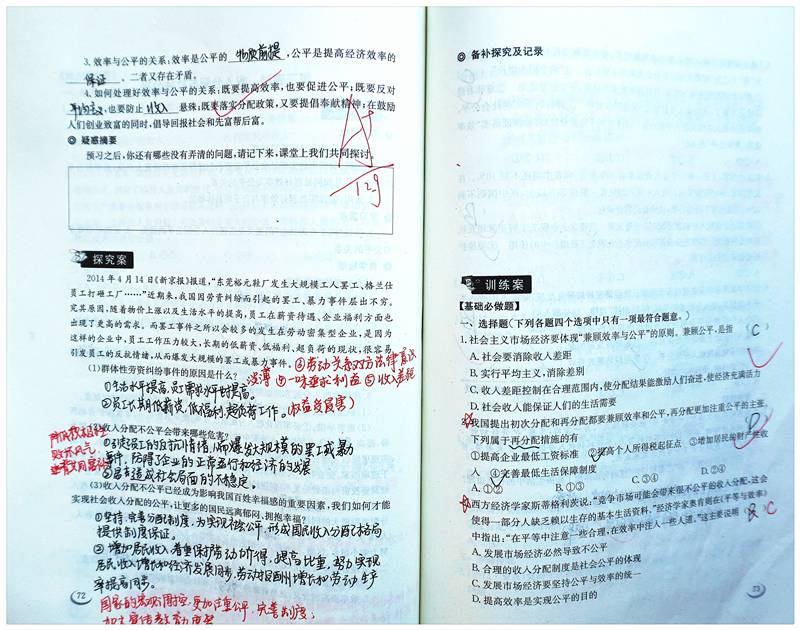 3. 效率与公平的关系:效率是公平的 物质前提 ,公平是提高经济效率的
保证 。二者又存在矛盾。
4. 如何处理好效率与公平的关系:既要提高效率,也要促进公平;既要反对
平均主义,也要防止 收入 悬殊;既要落实分配政策,又要提倡奉献精神;在鼓励
人们创业致富的同时,倡导回报社会和先富帮后富。
◎ 疑惑摘要
预习之后,你还有哪些没有弄清的问题,请记下来,课堂上我们共同探讨。
129
探究案
2014 年 4 月 14 日《新京报》报道,“东莞裕元鞋厂发生大规模工人罢工、格兰仕
员工打砸工厂……”近期来,我国因劳资纠纷而引起的罢工、暴力事件层出不穷。
究其原因,随着物价上涨以及生活水平的提高,员工在薪资待遇、企业福利方面也
出现了更高的需求。而罢工事件之所以会较多的发生在劳动密集型企业,是因为
这样的企业中,员工工作压力较大,长期的低薪资、低福利、超负荷的现状,很容易
引发员工的反抗情绪,从而爆发大规模的罢工或暴力事件。
④劳动关系双方法律意识
淡薄 ⑤一味追求利益 ⑤收入差距
(1)群体性劳资纠纷事件的原因是什么?
①生活水平提高,员工需求水平提高。
②员工长期低薪资,低福利,超负荷工作。(权益受损害)
(2)收入分配不公平会带来哪些危害?
①引起员工的反抗情绪,而爆发大规模的罢工或暴力
事件,阻碍了企业的正常运行和经济的发展
②易造成社会局面的不稳定。
败坏风气
(3)收入分配不公平已经成为影响我国百姓幸福感的重要因素,我们如何才能
实现社会收入分配的公平,让更多的国民远离郁闷、拥抱幸福?
①坚持、完善分配制度,为实现社会公平、形成国民收入分配格局
提供制度保证。
②增加居民收入,着重保护劳动所得,提高比重,努力实现
居民收入增长和经济发展同步,劳动报酬增长和劳动生产
率提高同步。
国家的宏观调控,更加注重公平,完善制度;
72
◎ 备补探究及记录
训练案
【基础必做题】
一、选择题(下列各题四个选项中只有一项最符合题意。)
1. 社会主义市场经济要体现“兼顾效率与公平”的原则。兼顾公平,是指 ( C )
A. 社会要消除收入差距
B. 实行平均主义,消除差别
C. 收入差距控制在合理范围内,使分配结果能激励人们奋进,使经济充满活力
D. 社会收入能保证人们的生活需要
2. 我国提出初次分配和再分配都要兼顾效率和公平,再分配更加注重公平的主张。
下列属于再分配措施的有 B
①提高企业最低工资标准 ②提高个人所得税起征点 ③增加居民的财产性收
入 ④完善最低生活保障制度
A. ①② B. ①③ C. ③④ D. ②④
3. 西方经济学家斯蒂格利茨说:“竞争市场可能会带来很不公平的收入分配,这会
使得一部分人缺乏赖以生存的基本生活资料。”经济学家奥肯则在《平等与效率》
中指出:“在平等中注意一些合理,在效率中注人一些人道。”这主要说明 C
A. 发展市场经济必然导致不公平
B. 合理的收入分配制度是社会公平的体现
C. 发展市场经济要坚持公平与效率的统一
D. 提高效率是实现公平的目的
73